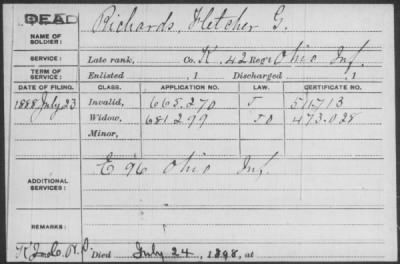 DEAD
NAME OF SOLDIER: Richards, Fletcher G.
SERVICE: Late rank, Co. K. 42 Reg't Ohio Inf.
TERM OF SERVICE: Enlisted , 1 Discharged , 1
DATE OF FILING. CLASS. APPLICATION NO. LAW. CERTIFICATE NO.
1888 July 23 Invalid, 665.270 511.713
Widow, 681.299 473.028
Minor,
ADDITIONAL SERVICES: E 96 Ohio Inf.
REMARKS:
Died July 24, 1898, at